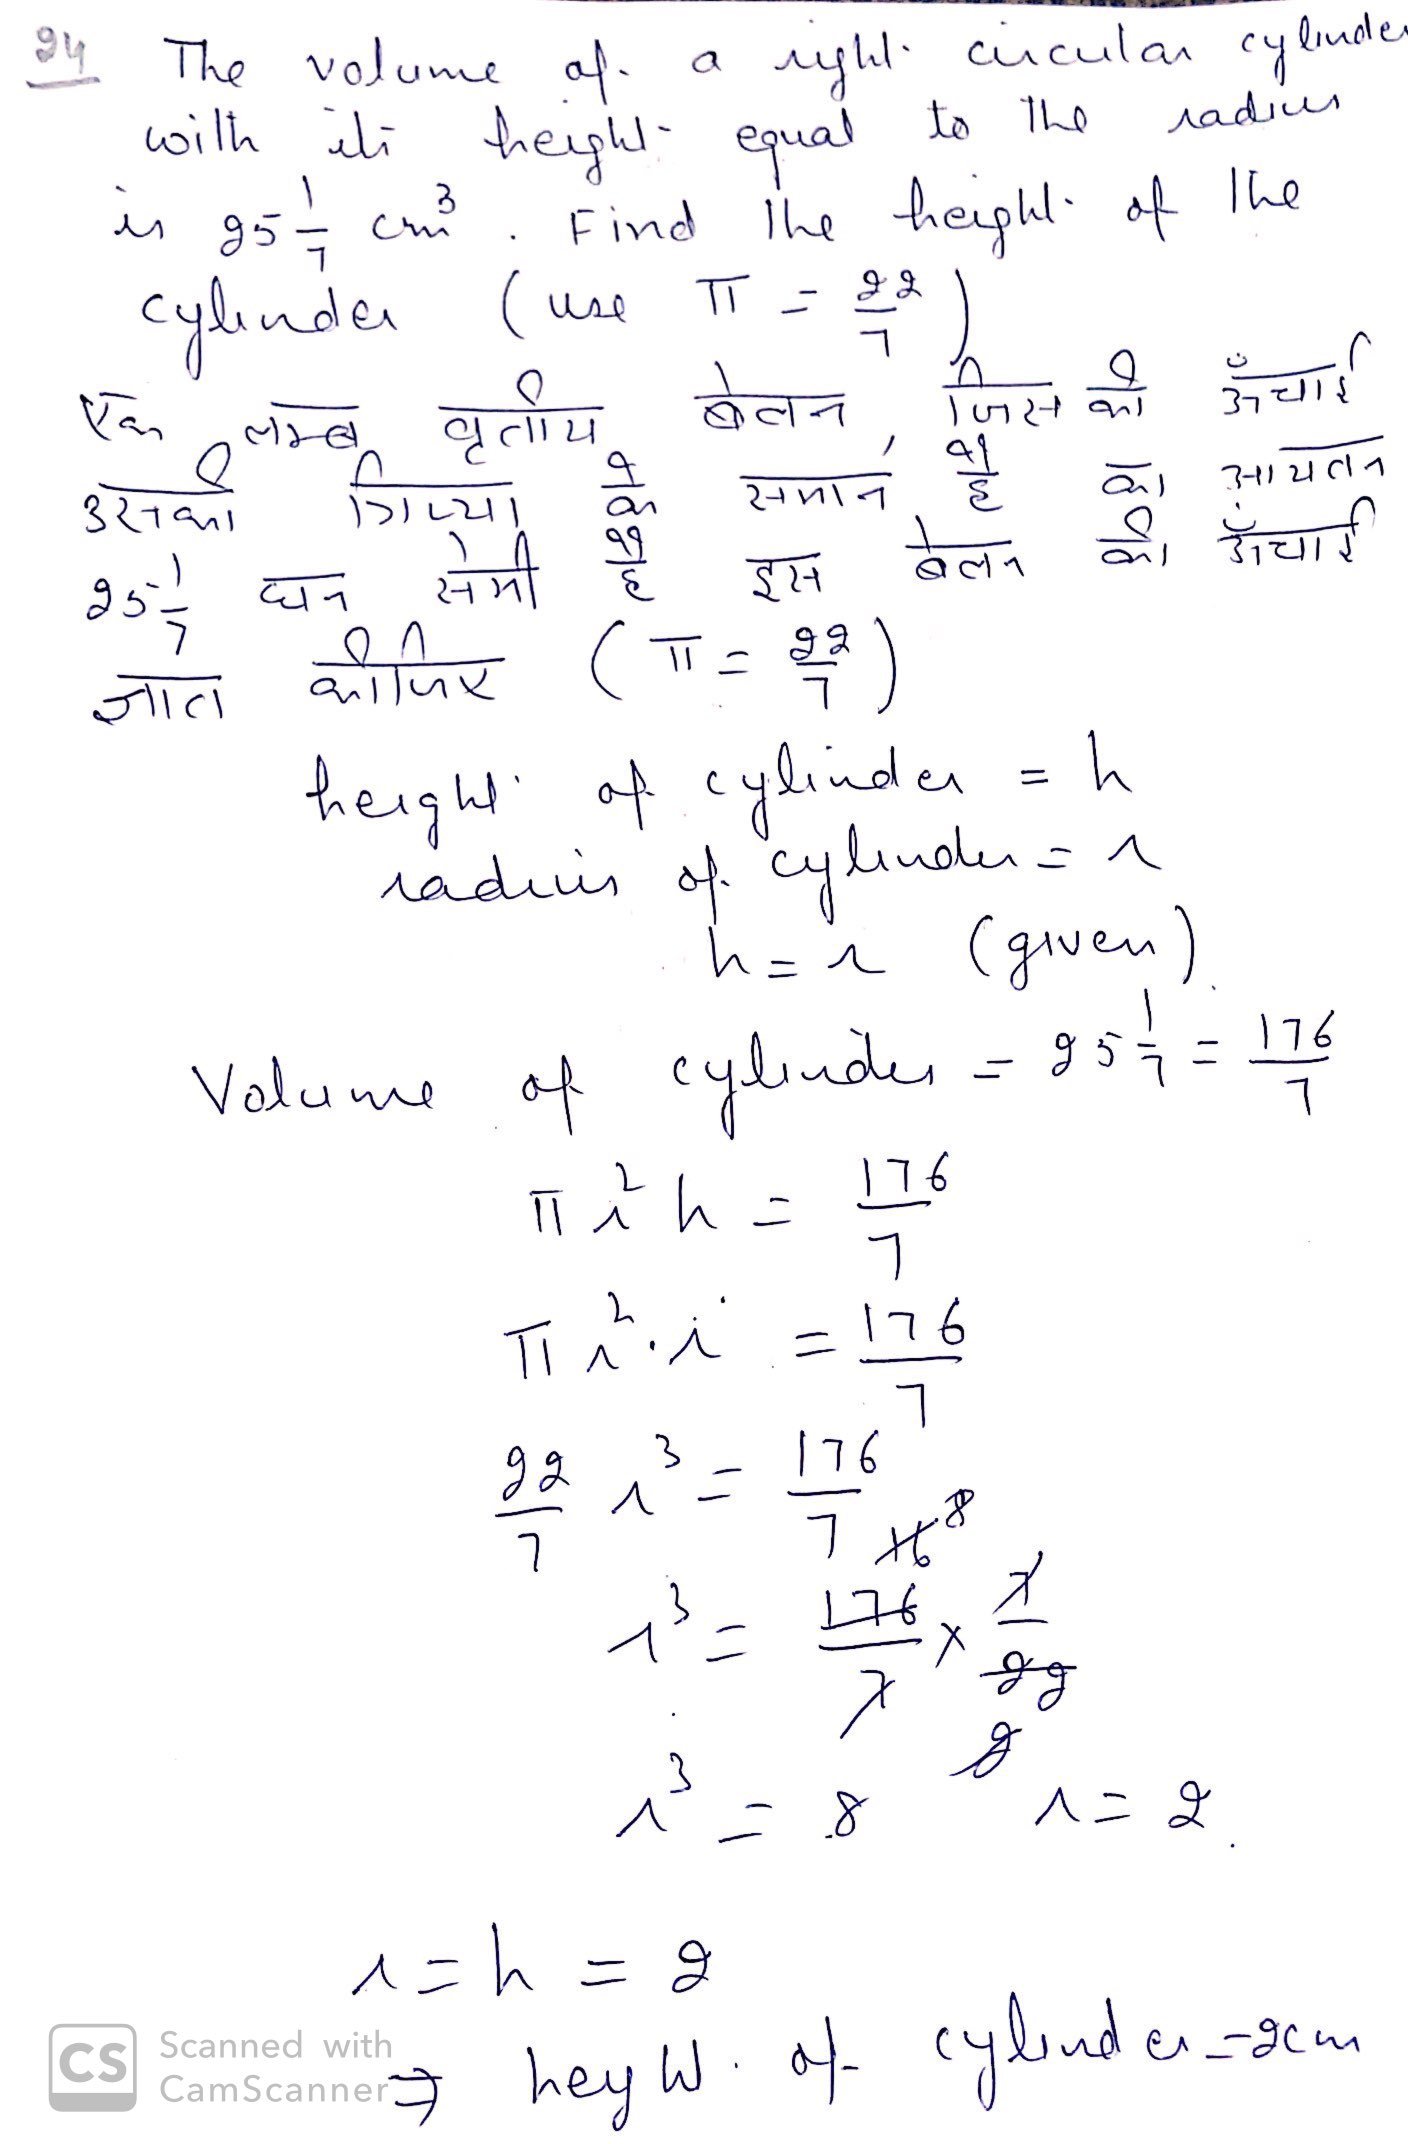 24 The volume of a right circular cylinder
with its height equal to the radius
is 25 1/7 cm³. Find the height of the
cylinder (use π = 22/7)
एक लम्ब वृतीय बेलन, जिसकी ऊँचाई
उसकी त्रिज्या के समान है का आयतन
25 1/7 घन सेमी है इस बेलन की ऊँचाई
ज्ञात कीजिए (π = 22/7)
height of cylinder = h
radius of cylinder = r
h = r (given)
Volume of cylinder = 25 1/7 = 176/7
π r² h = 176/7
π r² . r = 176/7
22/7 r³ = 176/7
16 8
r³ = 176/7 × 7/22
2
r³ = 8 r = 2
r = h = 2
⇒ height of cylinder = 2cm
CS Scanned with
CamScanner